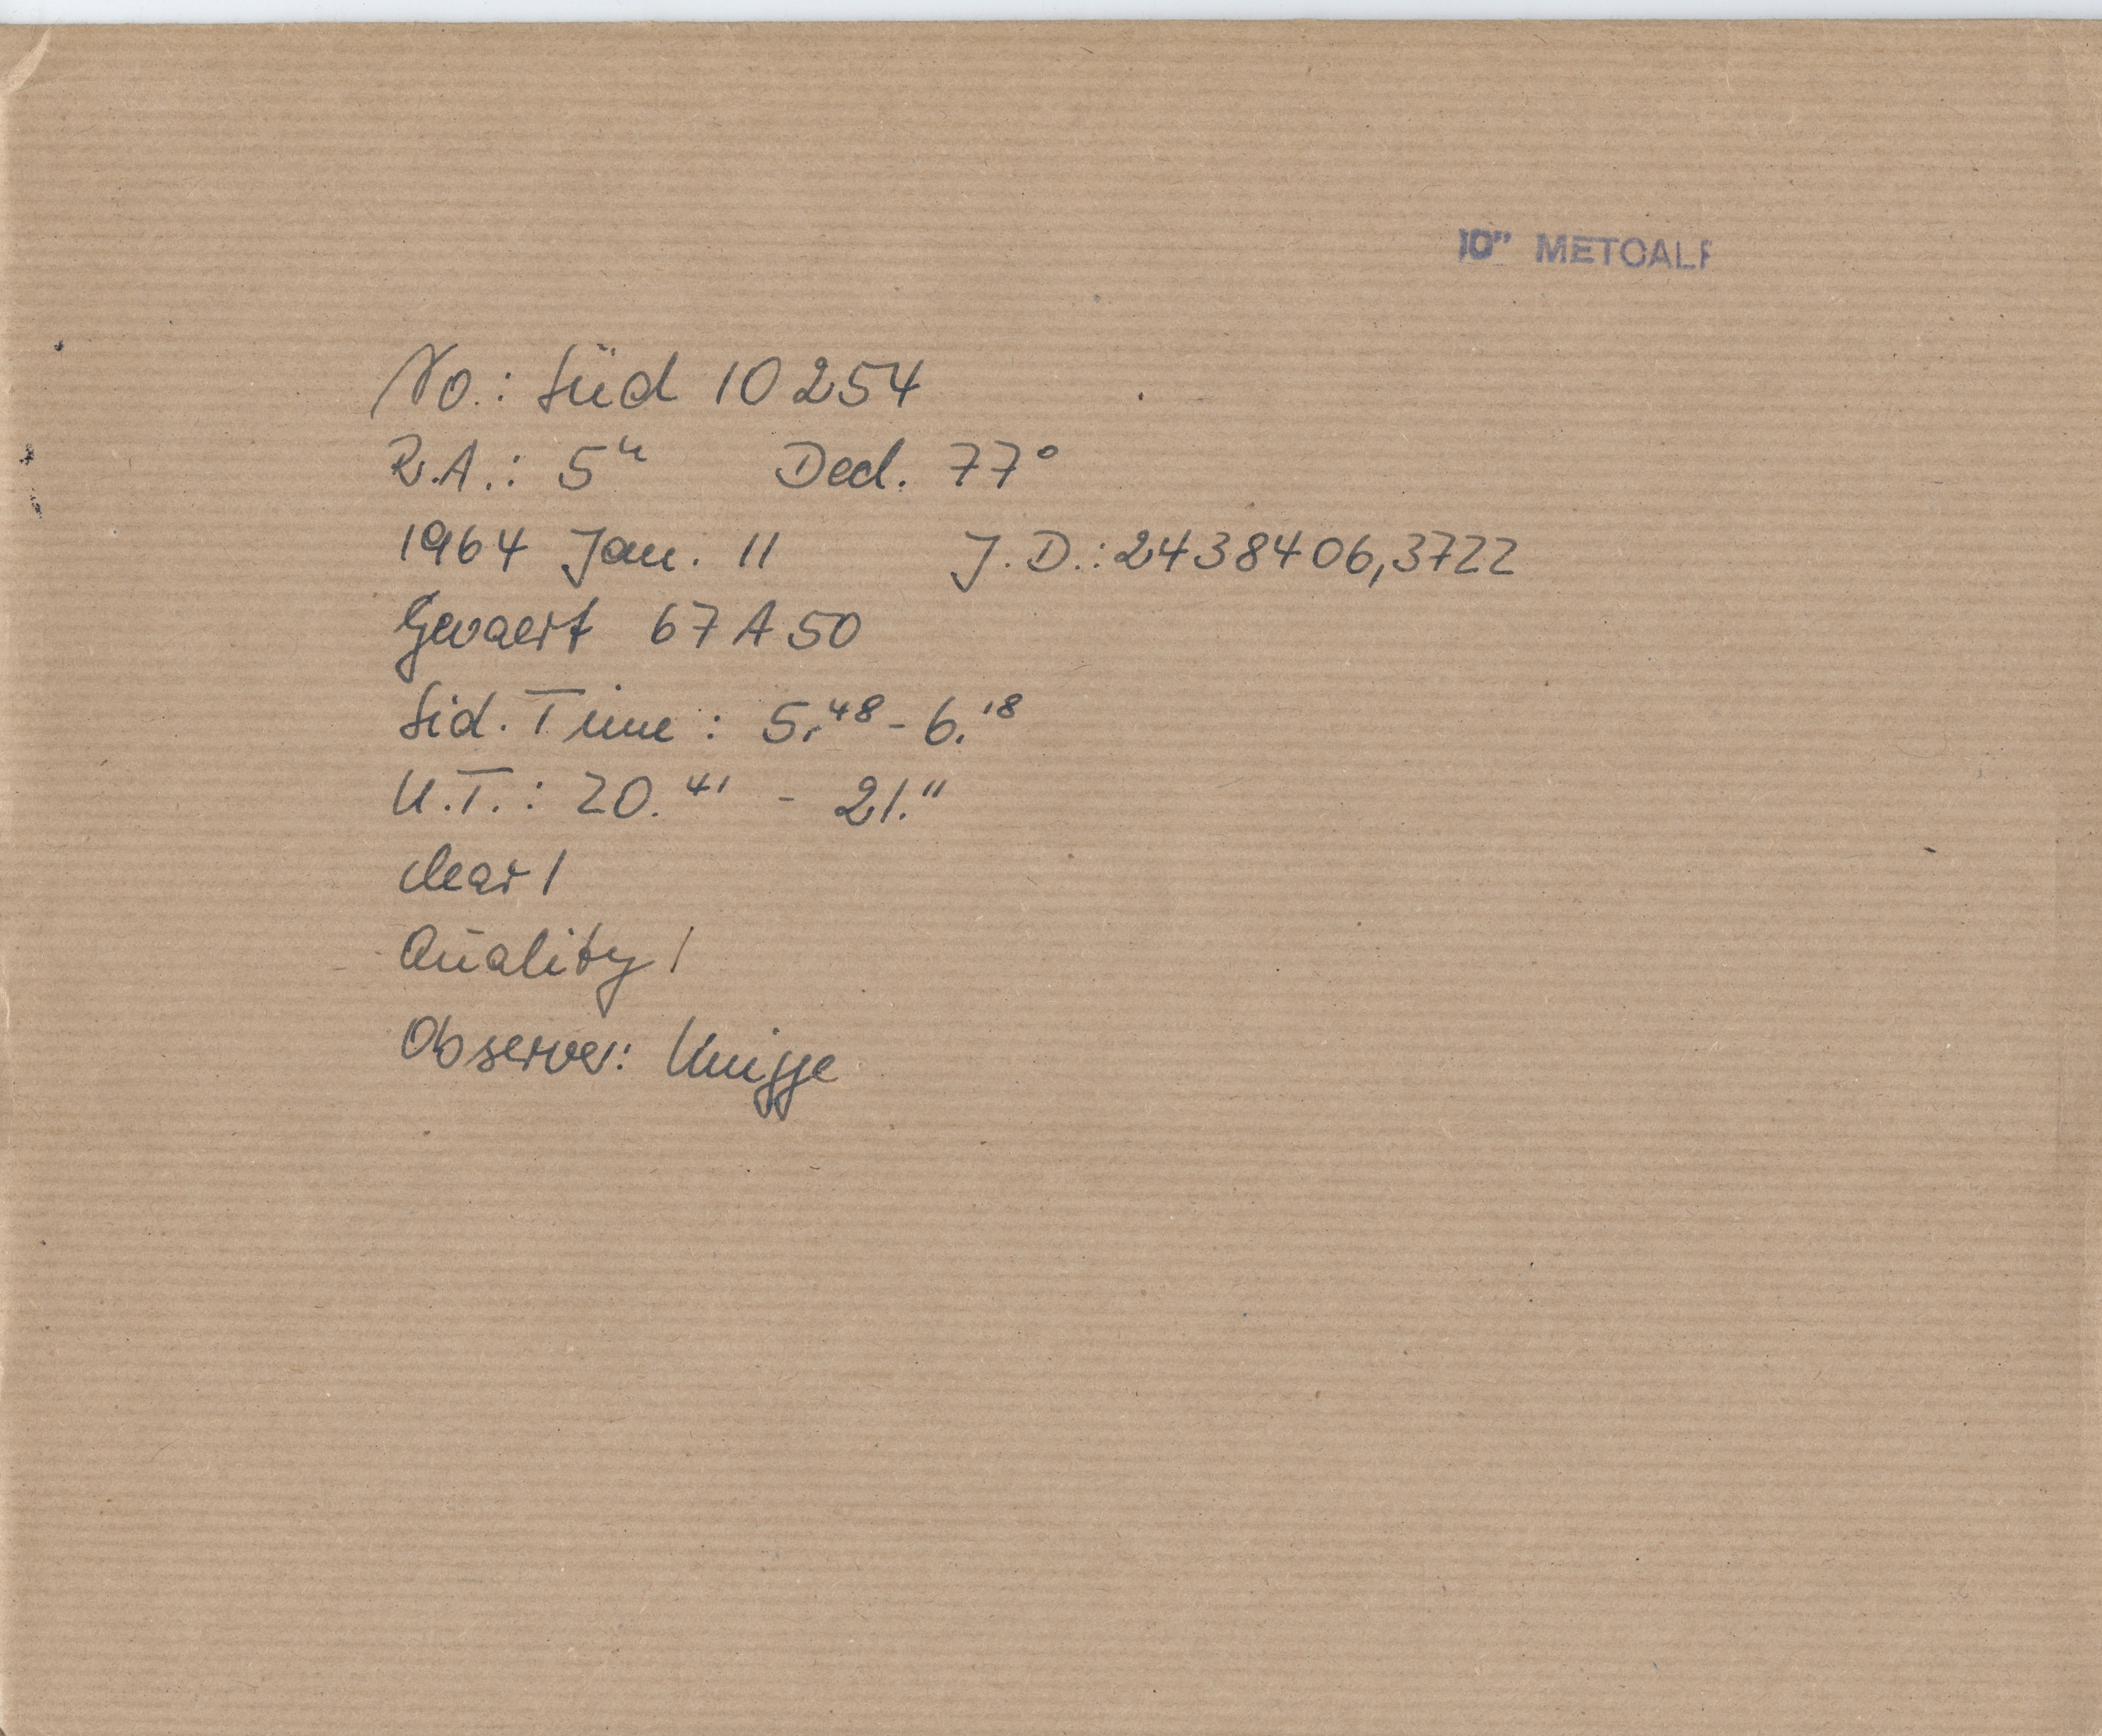 10" METCALF
No.: Süd 10254
R.A.: 5ʰ Decl. 77°
1964 Jan. 11 J.D.: 2438406,3722
Gevaert 67 A 50
Sid. Time: 5.⁴⁸ - 6.¹⁸
U.T.: 20.⁴¹ - 21.¹¹
clear 1
Quality 1
Observer: Knigge